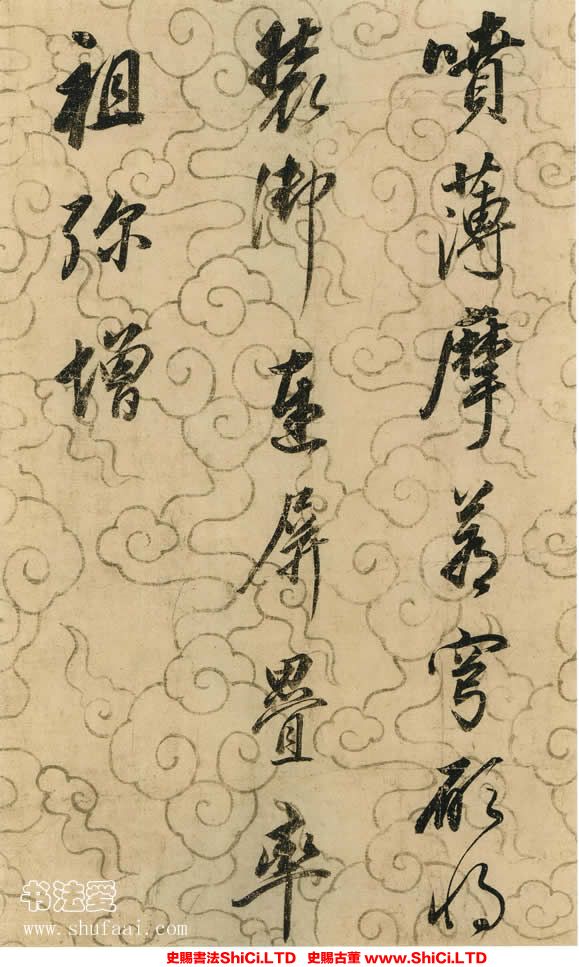 噴薄摩蒼穹願將
裝御連屏疊率
祖弥增
书法爱
www.shufaai.com
史賜書法ShiCi.LTD 史賜古董 www.ShiCi.LTD